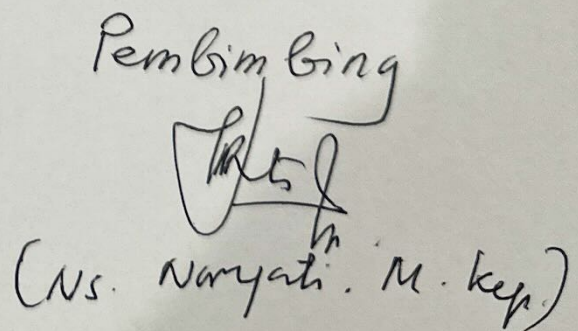 Pembimbing
(Ns. Naryati. M. Kep.)